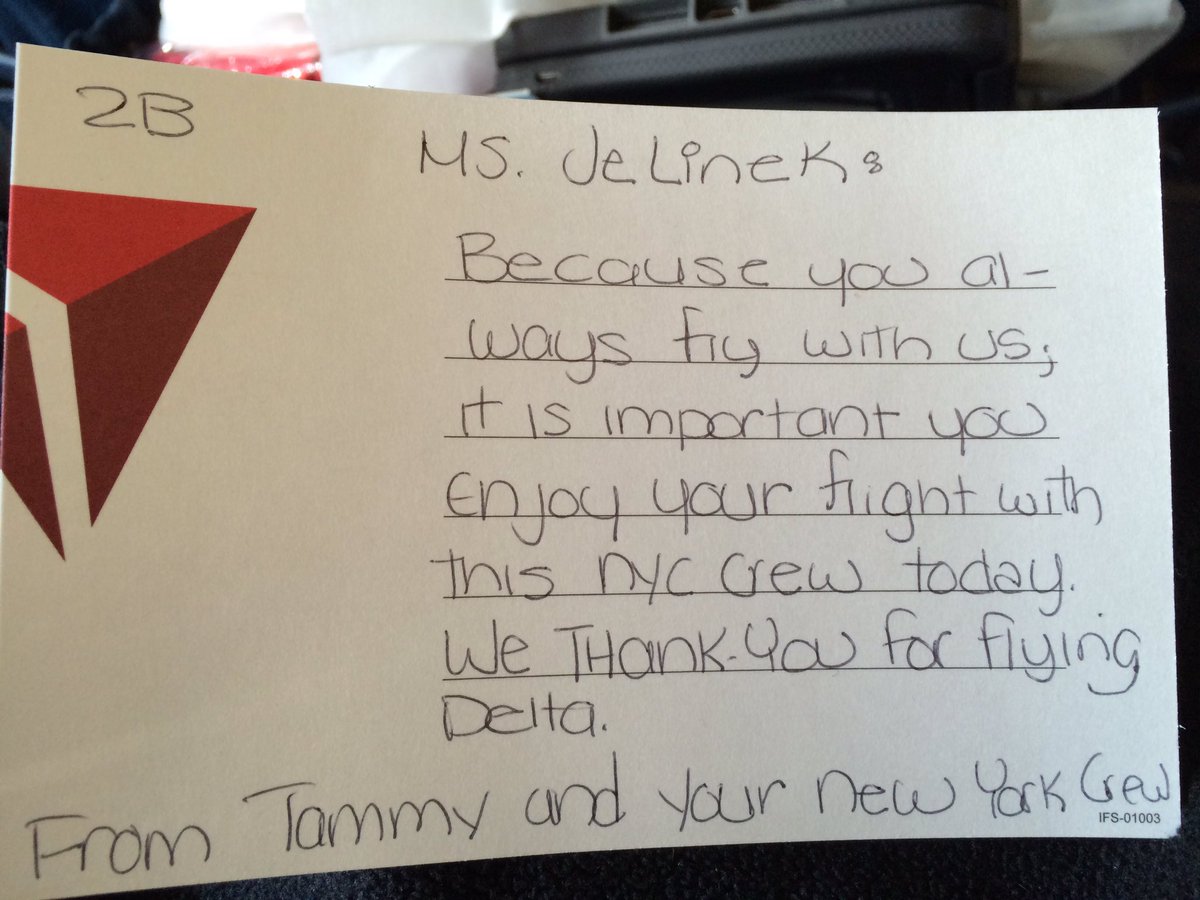 2B
MS. JeLineK:
Because you al-
ways fly with us;
it is important you
Enjoy your flight with
this nyc Crew today.
We THank-You for flying
Delta.
From Tammy and your new York Crew
IFS-01003